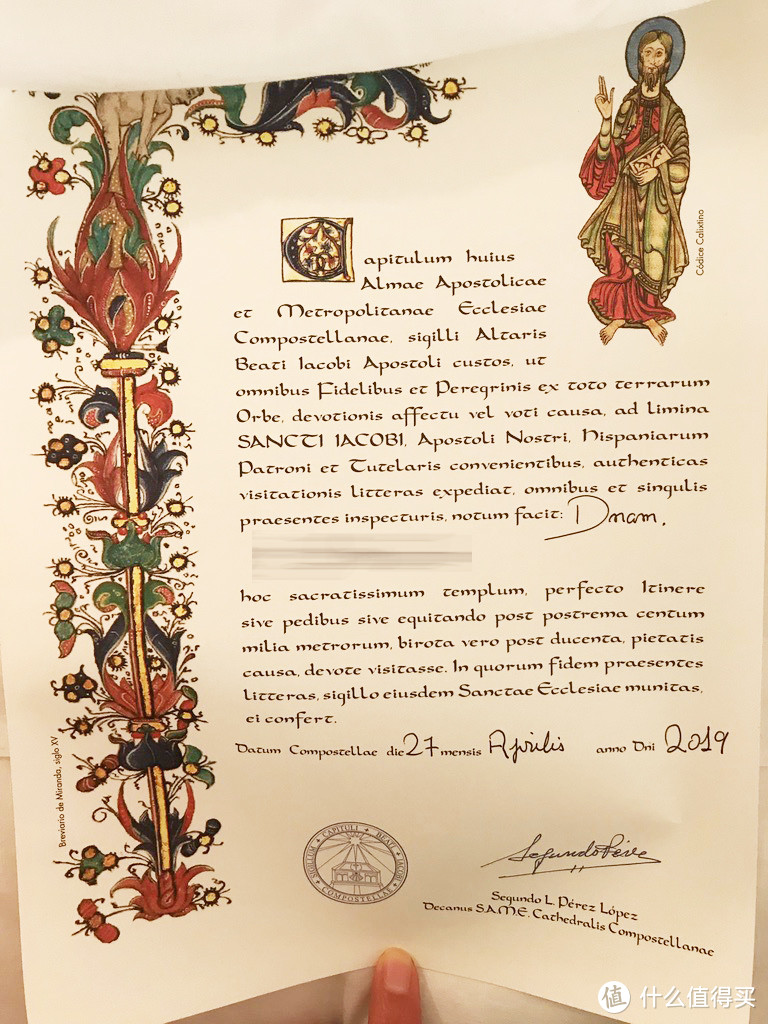 Códice Calixtino
Capitulum huius
Almae Apostolicae
et Metropolitanae Ecclesiae
Compostellanae, sigilli Altaris
Beati Iacobi Apostoli custos, ut
omnibus Fidelibus et Peregrinis ex toto terrarum
Orbe, devotionis affectu vel voti causa, ad limina
SANCTI IACOBI, Apostoli Nostri, Hispaniarum
Patroni et Tutelaris convenientibus, authenticas
visitationis litteras expediat, omnibus et singulis
praesentes inspecturis, notum facit: Dnam.
hoc sacratissimum templum, perfecto Itinere
sive pedibus sive equitando post postrema centum
milia metrorum, birota vero post ducenta, pietatis
causa, devote visitasse. In quorum fidem praesentes
litteras, sigillo eiusdem Sanctae Ecclesiae munitas,
ei confert.
Datum Compostellae die 27 mensis Aprilis anno Dni 2019
Breviario de Miranda, siglo XV
SIGILLUM CAPITULI BEATI JACOBI COMPOSTELLAE
Segundo Pérez
Segundo L. Pérez López
Decanus S.A.M.E. Cathedralis Compostellanae
值 什么值得买